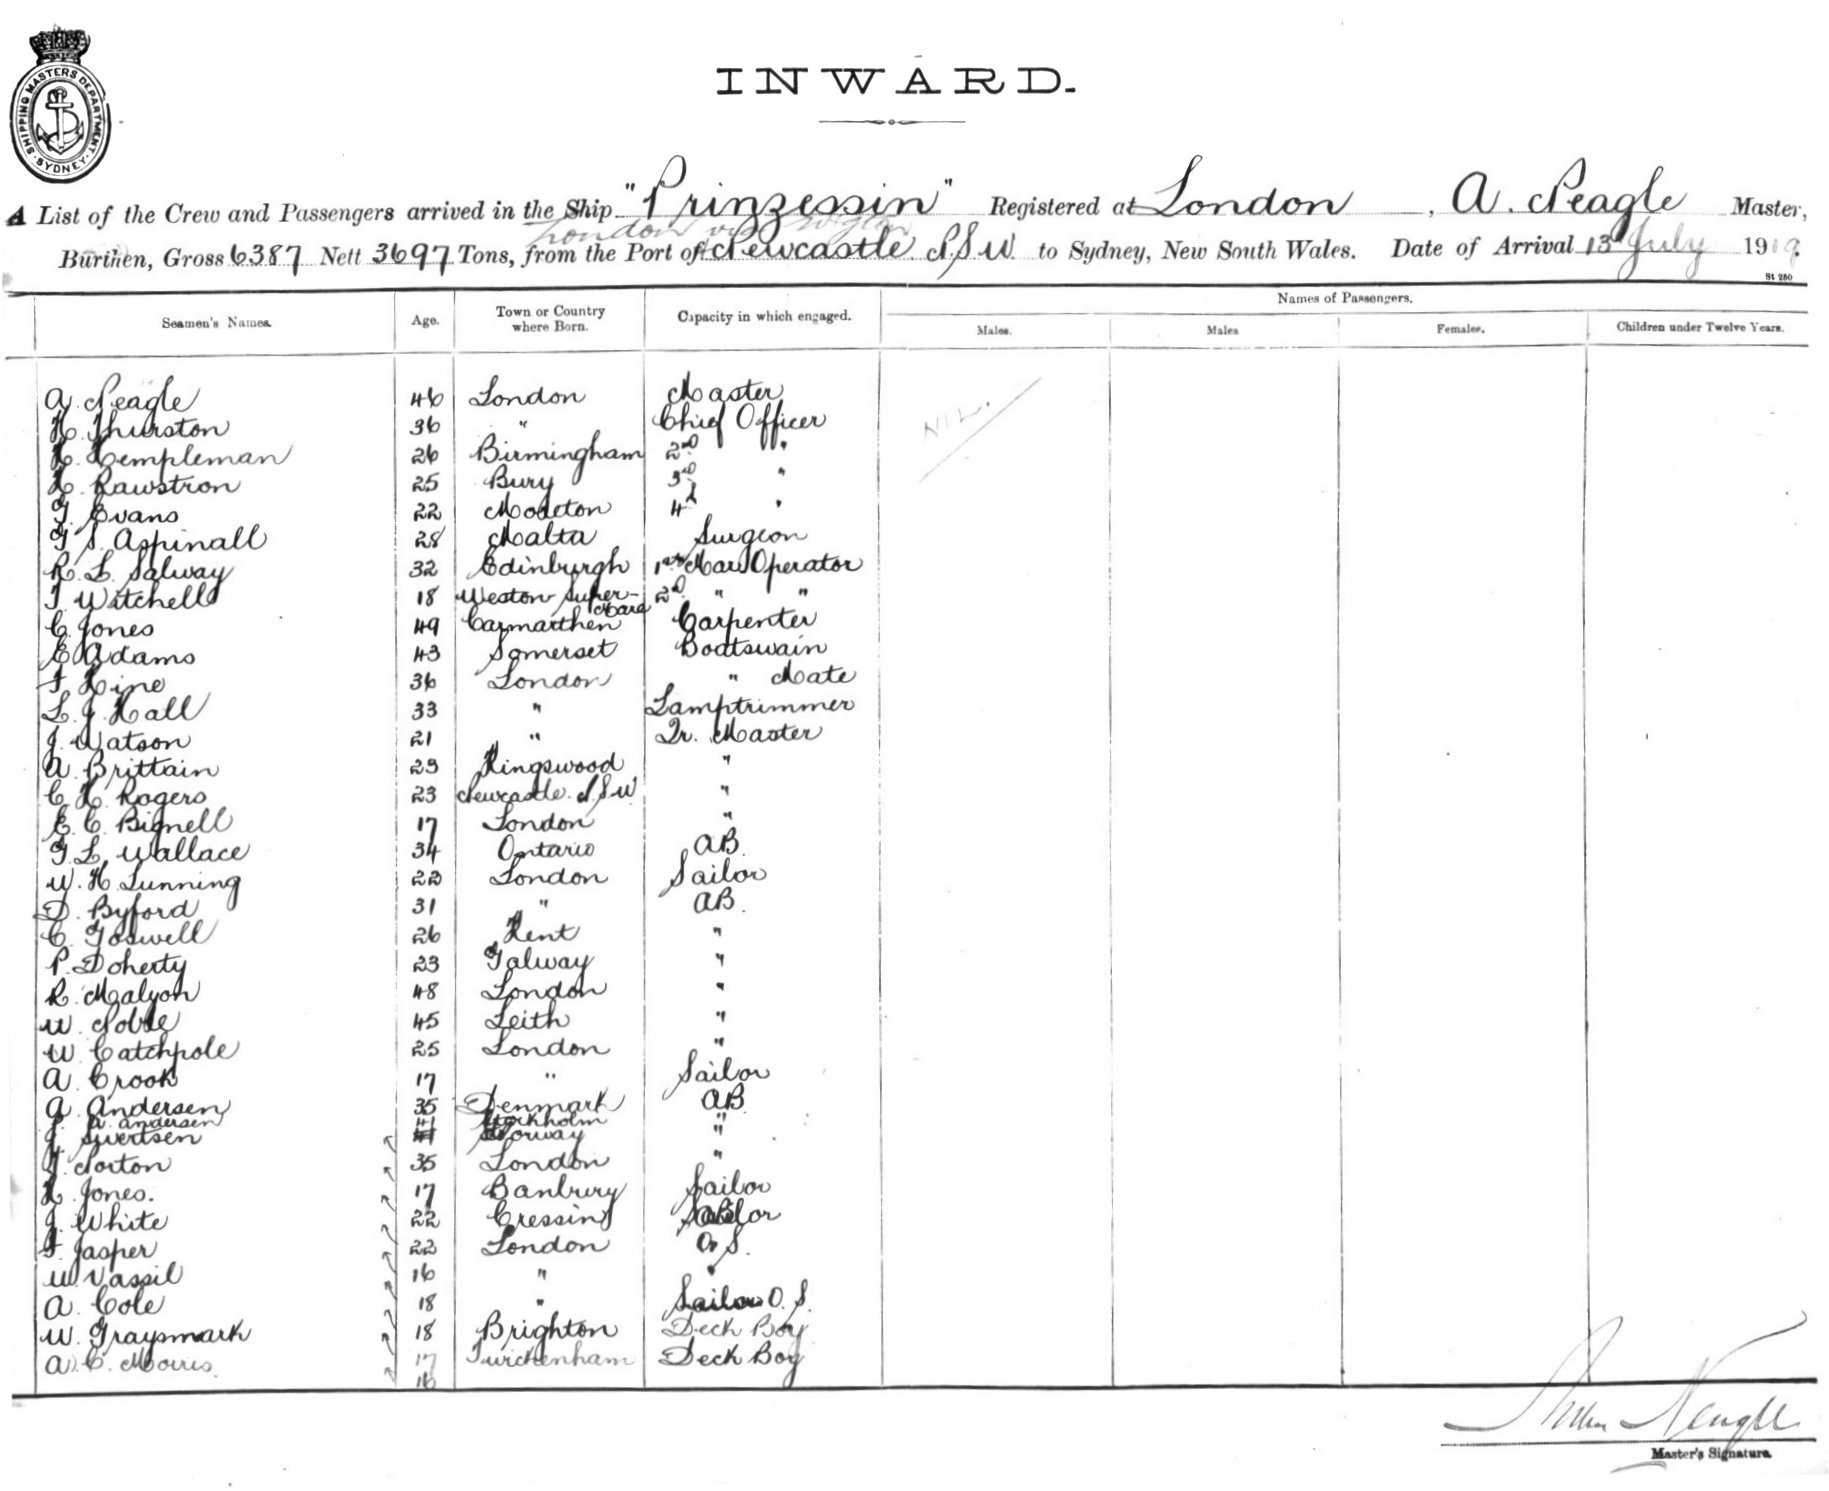 SHIPPING MASTERS DEPARTMENT
SYDNEY
INWARD.
A List of the Crew and Passengers arrived in the Ship "Prinzessin" Registered at London, A. Neagle Master,
London via
Burthen, Gross 6387 Nett 3697 Tons, from the Port of Newcastle N.S.W. to Sydney, New South Wales. Date of Arrival 13 July 1919.
St 250
Seamen's Names. Age. Town or Country where Born. Capacity in which engaged. Names of Passengers.
Males. Males. Females. Children under Twelve Years.
A. Neagle 46 London Master NIL.
H. Thurston 36 " Chief Officer
H. Hempleman 26 Birmingham 2nd "
H. Rawstron 25 Bury 3rd "
G. Evans 22 4th "
G. S. Aspinall 28 Malta Surgeon
R. L. Salway 32 Edinburgh 1st Mar Operator
T. Witchell 18 Weston Super-Mare 2nd " "
C. Jones 49 Carmarthen Carpenter
E. Adams 43 Somerset Boatswain
F. Hine 36 London " Mate
L. J. Hall 33 " Lamptrimmer
J. Watson 21 " Qr. Master
A. Brittain 23 Kingswood "
C. H. Rogers 23 Newcastle. N.S.W "
E. C. Bignell 17 London "
G. L. Wallace 34 Ontario AB.
W. H. Lunning 22 London Sailor
D. Byford 31 " AB.
C. Goswell 26 Kent "
P. Doherty 23 Galway "
R. Malyon 48 London "
W. Noble 45 Leith "
W. Catchpole 25 London "
A. Crook 17 " Sailor
A. Andersen 35 Denmark AB
J. A. Andersen 41 Stockholm "
J. Sivertsen Norway
J. Norton 35 London "
H. Jones. 17 Banbury Sailor
J. White 22 Cressing
F. Jasper 22 London O.S.
W. Vassil 16 " "
A. Cole 18 " Sailor O.S.
W. Graysmark 18 Brighton Deck Boy
A. C. Morris. 17 Twickenham Deck Boy
16
Arthur Neagle
Master's Signature.